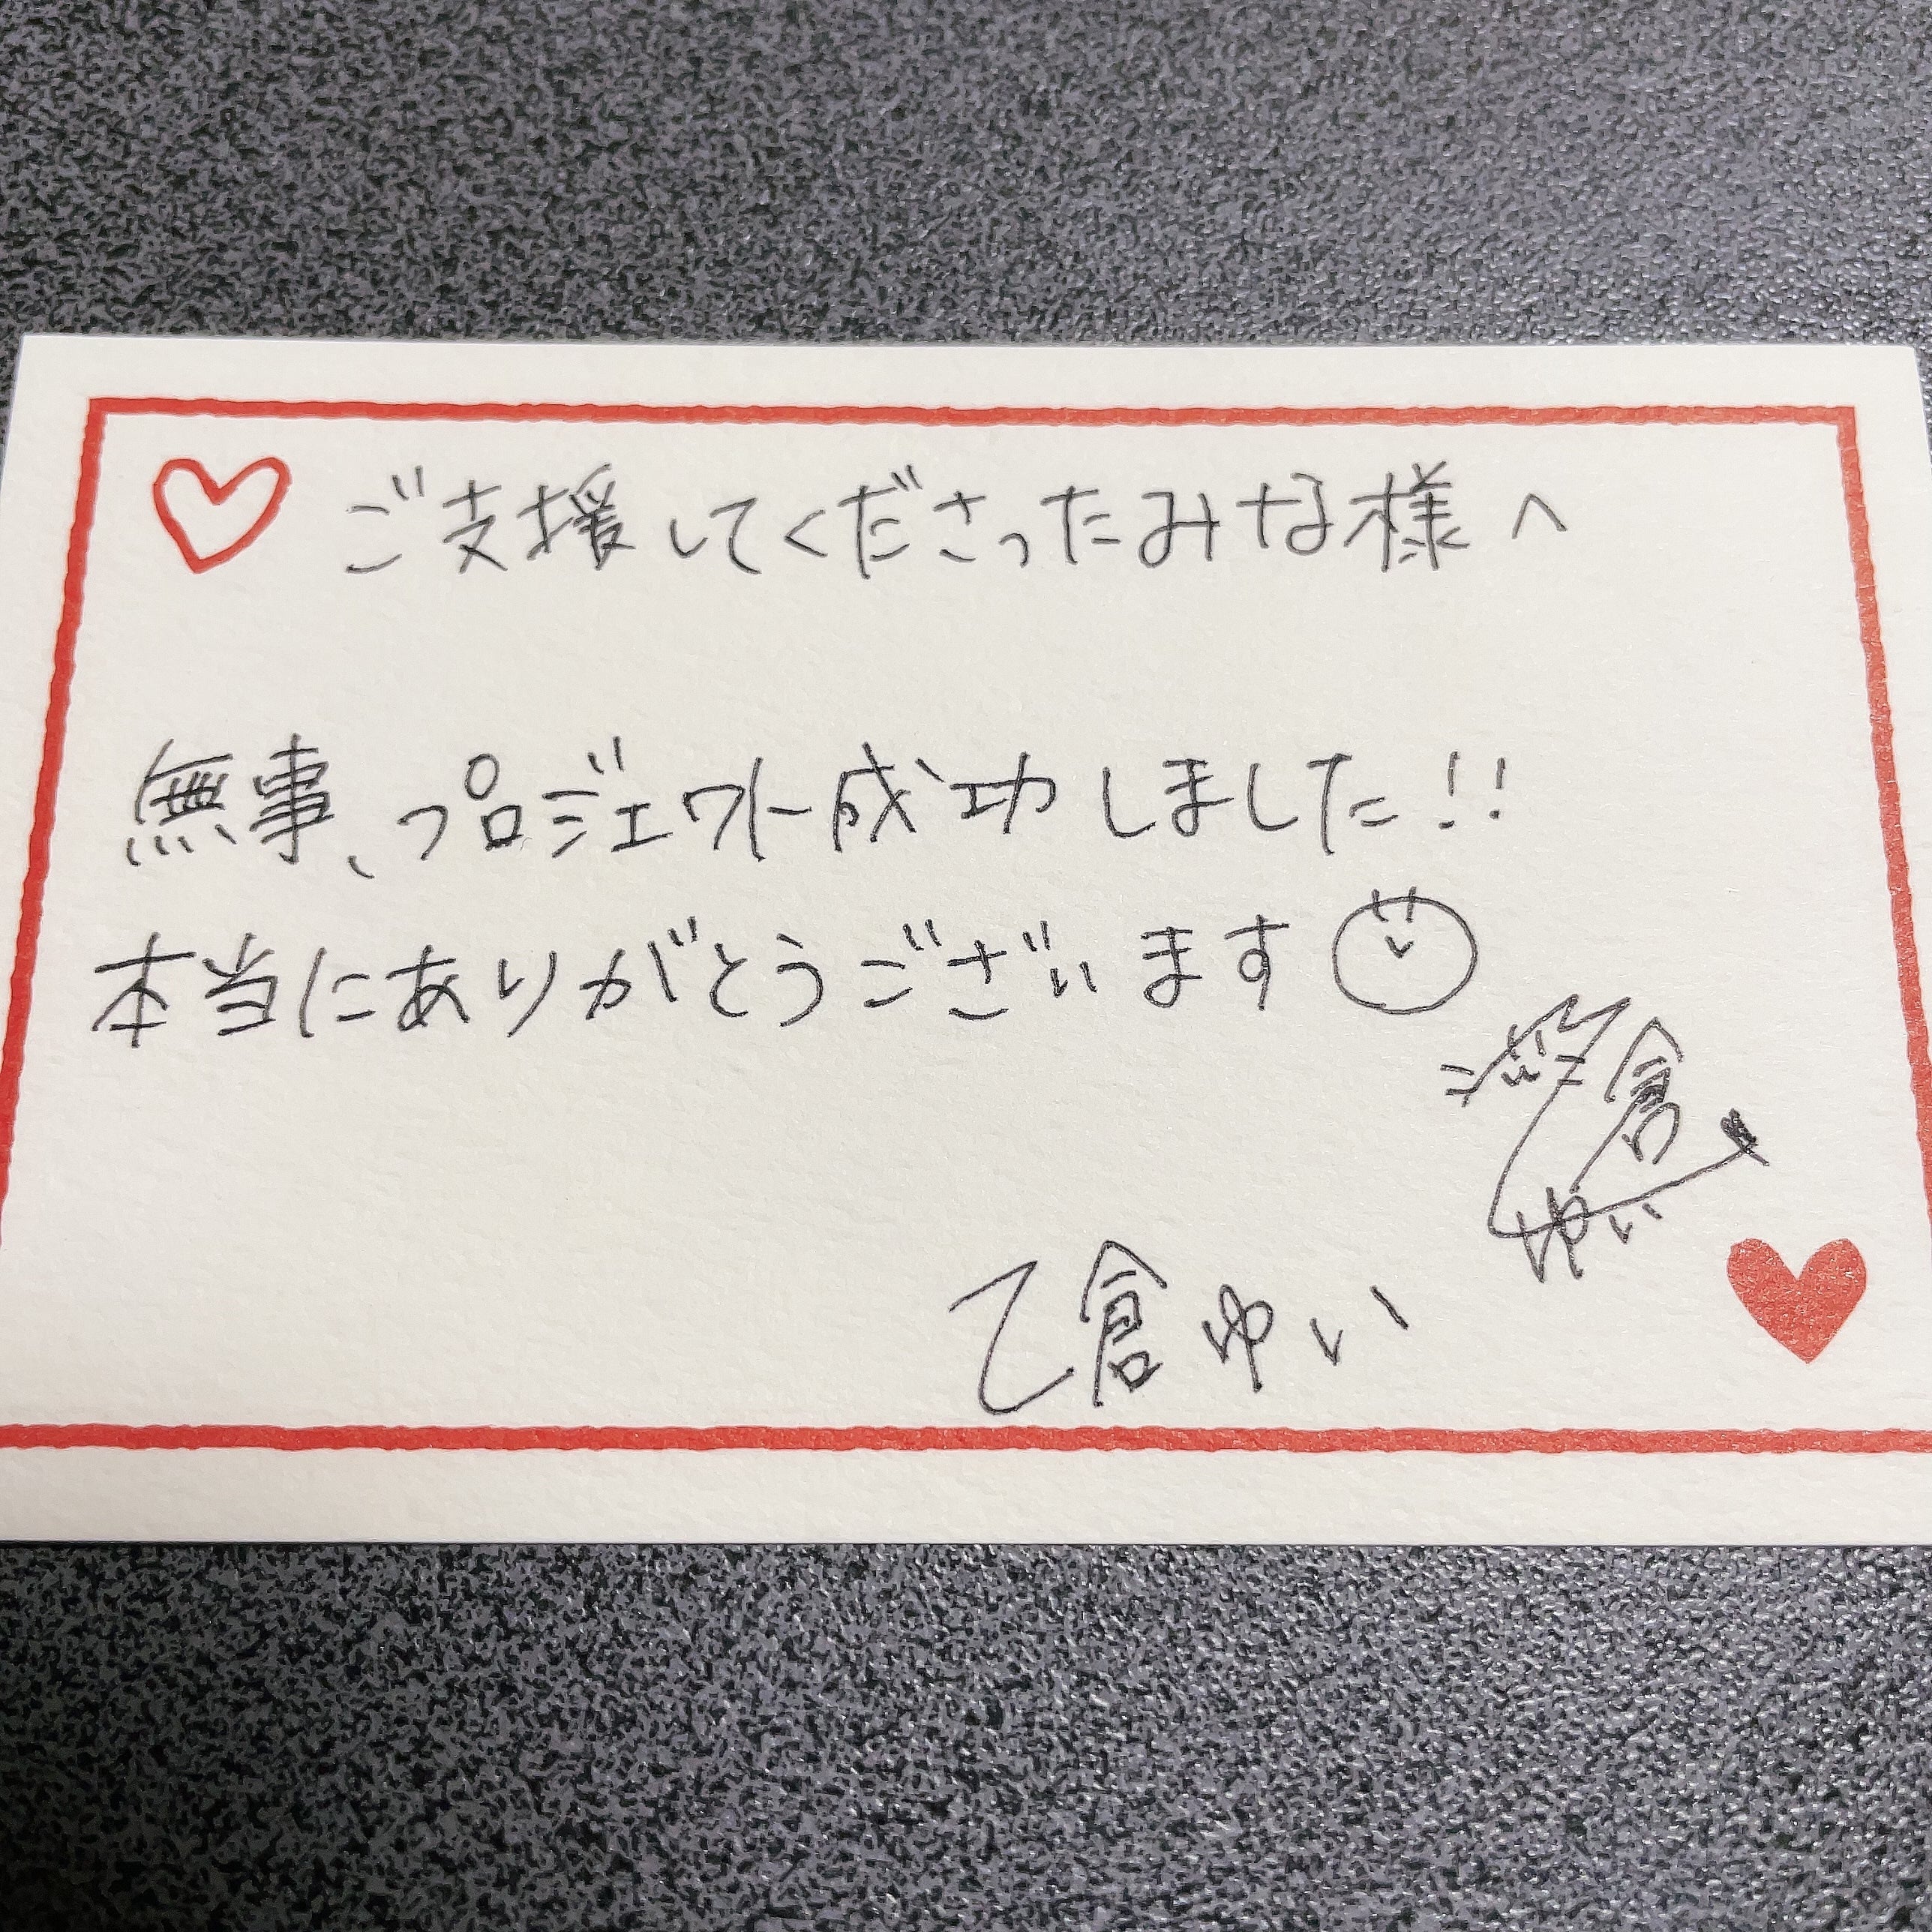 ご支援してくださったみな様へ
無事、プロジェクト成功しました!!
本当にありがとうございます
乙倉ゆい
乙倉ゆい